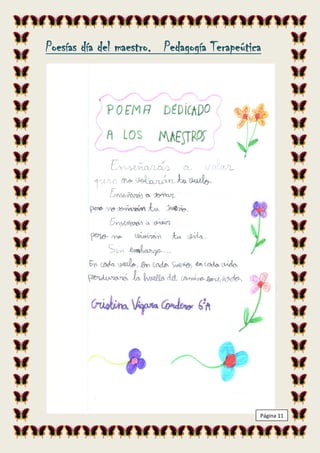 Poesías día del maestro. Pedagogía Terapeútica
POEMA DEDICADO
A LOS MAESTROS
Enseñarás a volar
pero no volarán tu vuelo.
Enseñarás a soñar
pero no soñarán tu sueño.
Enseñarás a vivir
pero no vivirán tu vida.
Sin embargo...
En cada vuelo, en cada sueño, en cada vida
perdurará la huella del camino enseñado.
Cristina Vigara Cordero 6ºA
Página 11